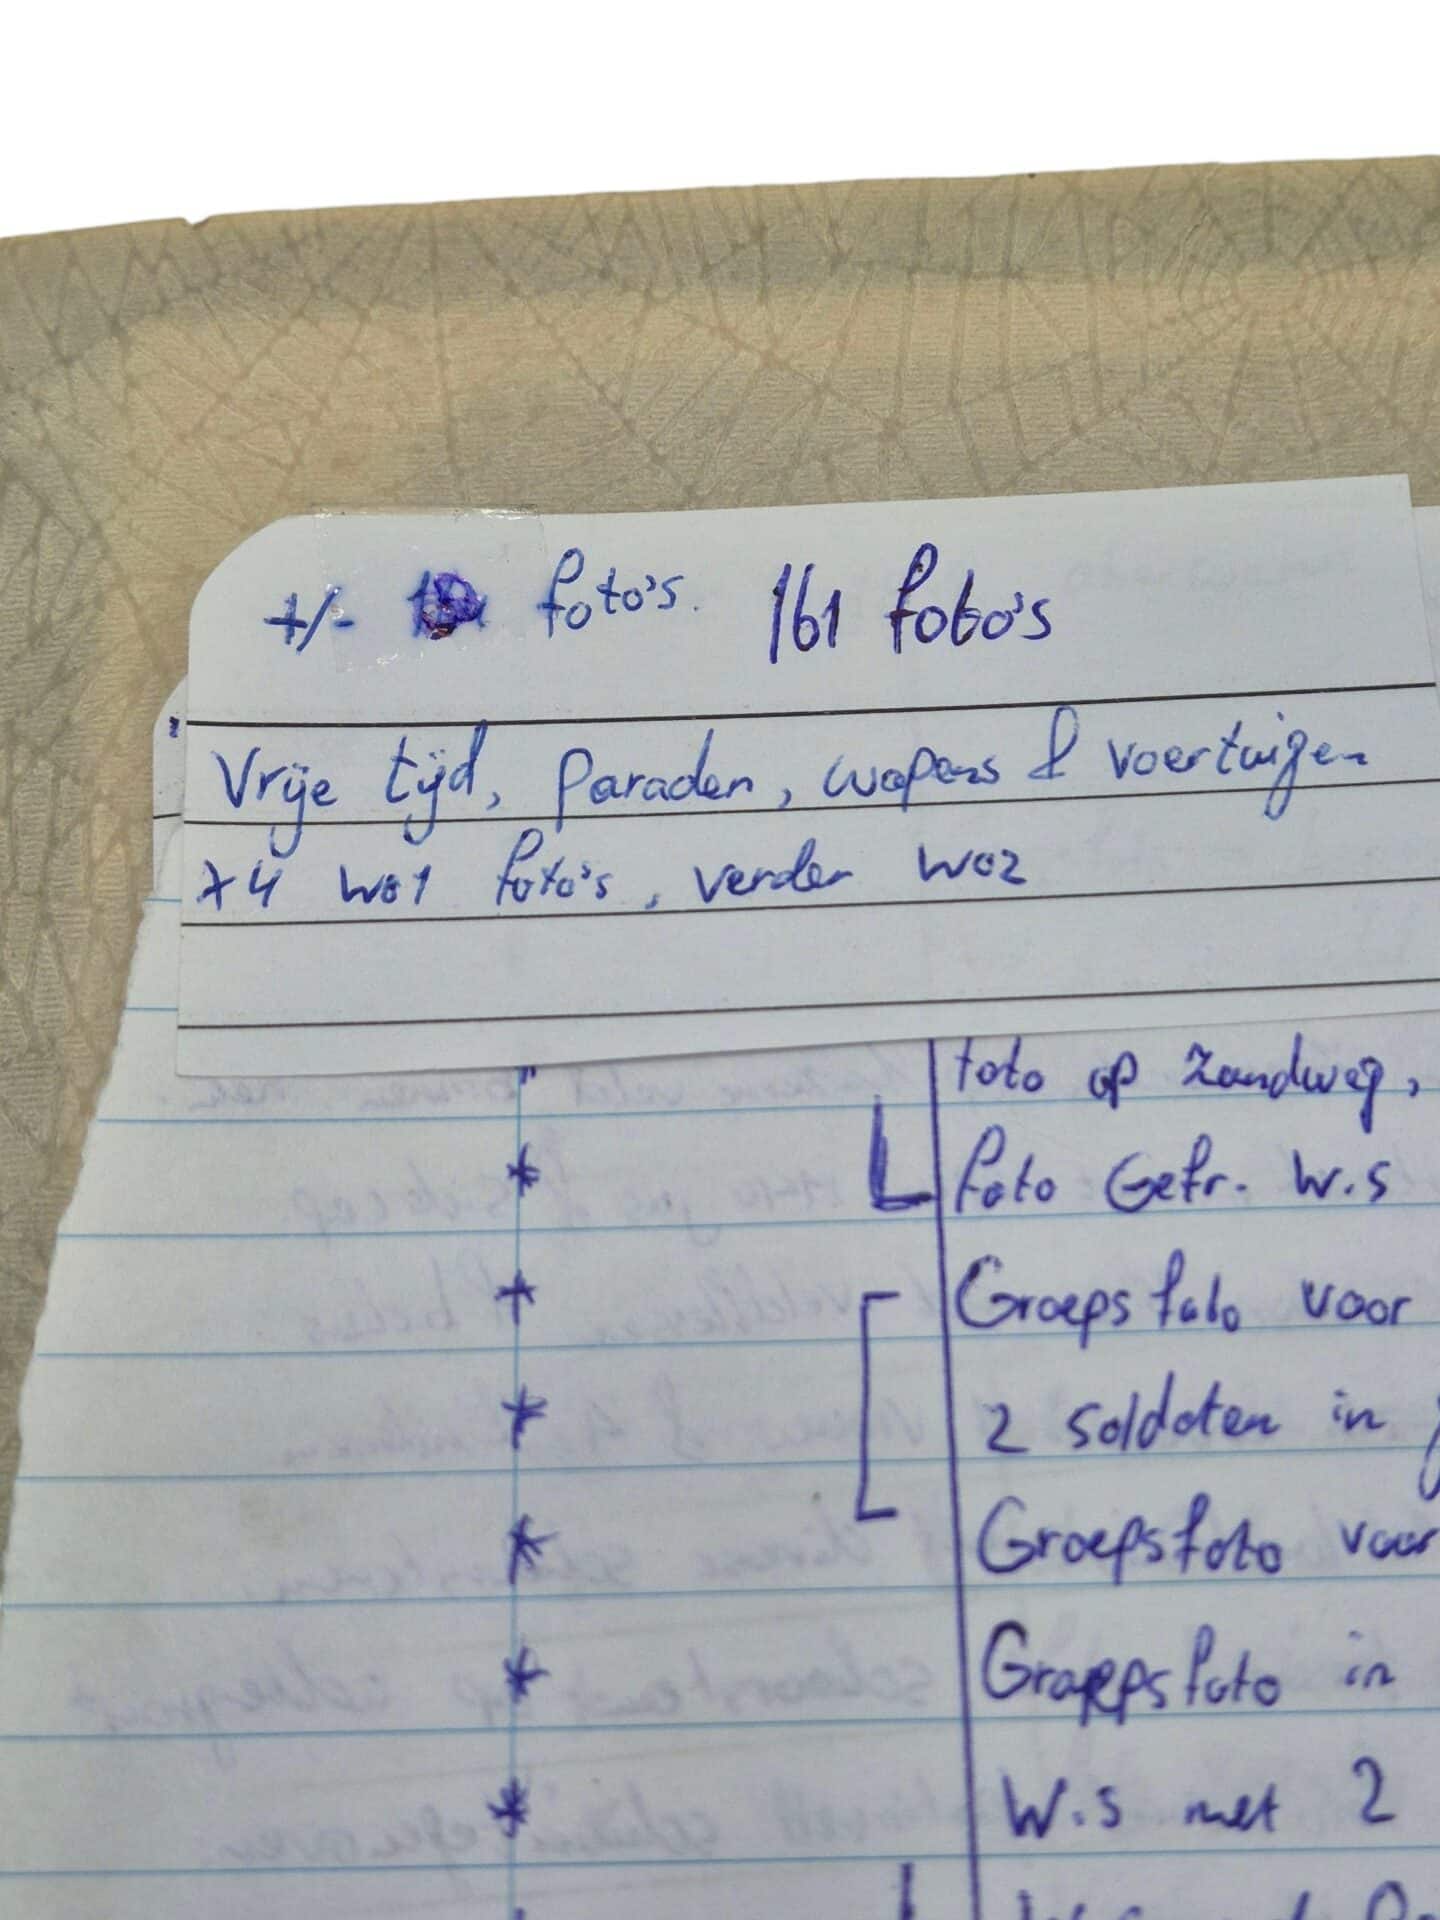 +/- foto's. 161 foto's
Vrije tijd, Paraden, wapens & voertuigen
+4 WO1 foto's, verder WO2
foto op zandweg,
* foto Gefr. W.S
* Groepsfoto voor
* 2 soldaten in
* Groepsfoto voor
* Groepsfoto in
* W.S met 2